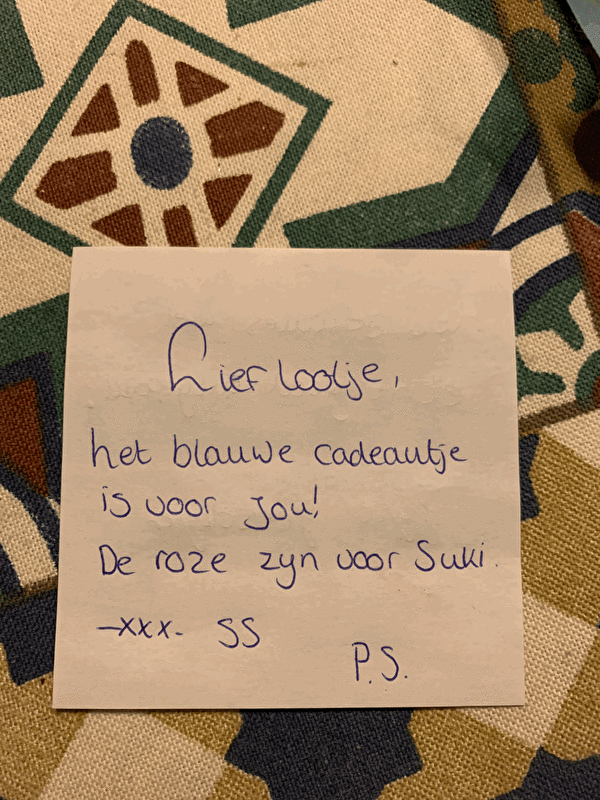 Lief lootje,
het blauwe cadeautje
is voor jou!
De roze zyn voor Suki.
-xxx- SS
P.S.